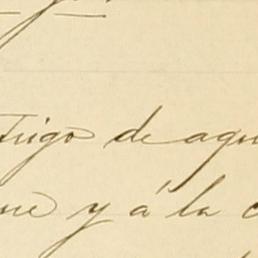 Trigo de aqu
ne y á la c